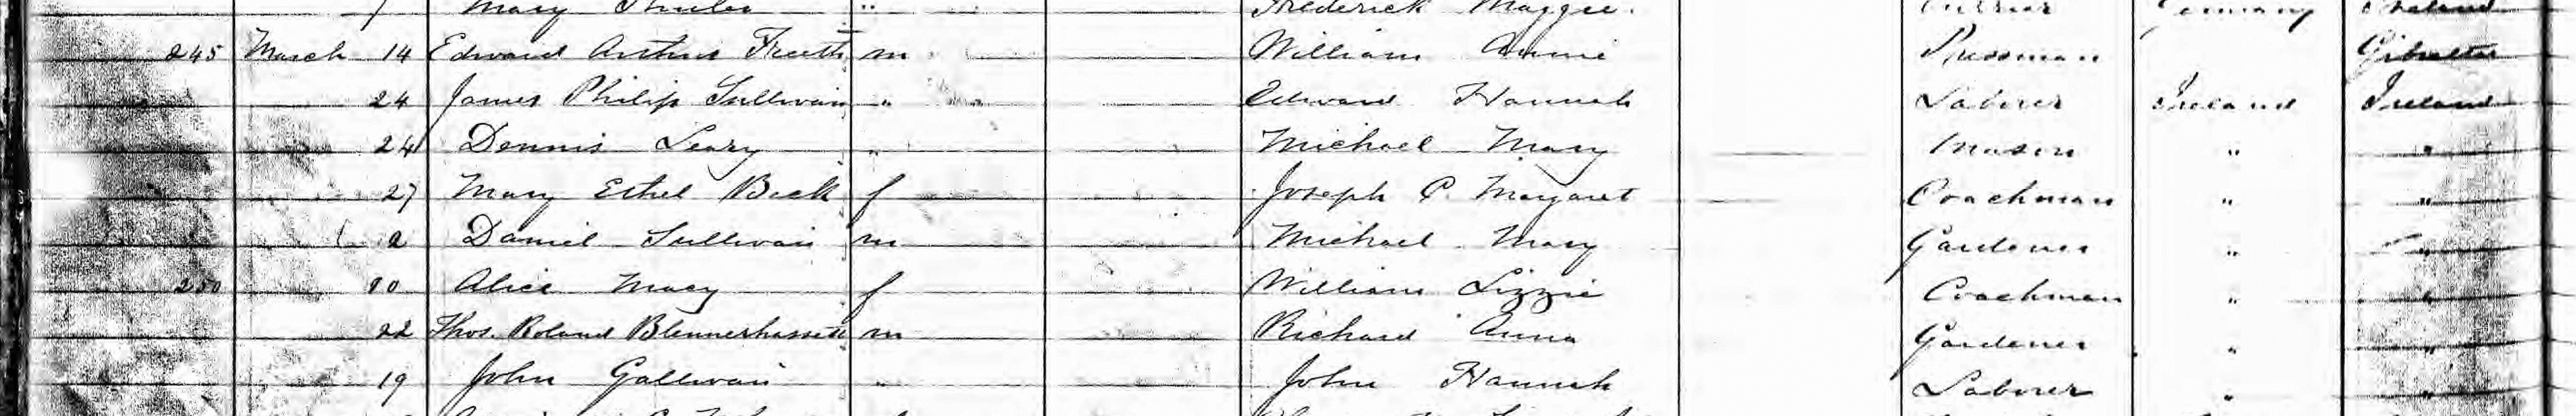 Mary " Frederick Maggie. Currier Germany Ireland
245 March 14 Edward Arthur Freeth m William Annie Pressman Gibraltar
24 James Philip Sullivan " Edward Hannah Laborer Ireland Ireland
24 Dennis Leary " Michael Mary Mason " "
27 Mary Ethel Beck f Joseph P. Margaret Coachman " "
2 Daniel Sullivan m Michael Mary Gardener " "
250 Alice Macy f William Lizzie Coachman " "
22 Thos. Roland Blennerhassett m Richard Anna Gardener " "
19 John Gallivan " John Hannah Laborer " "